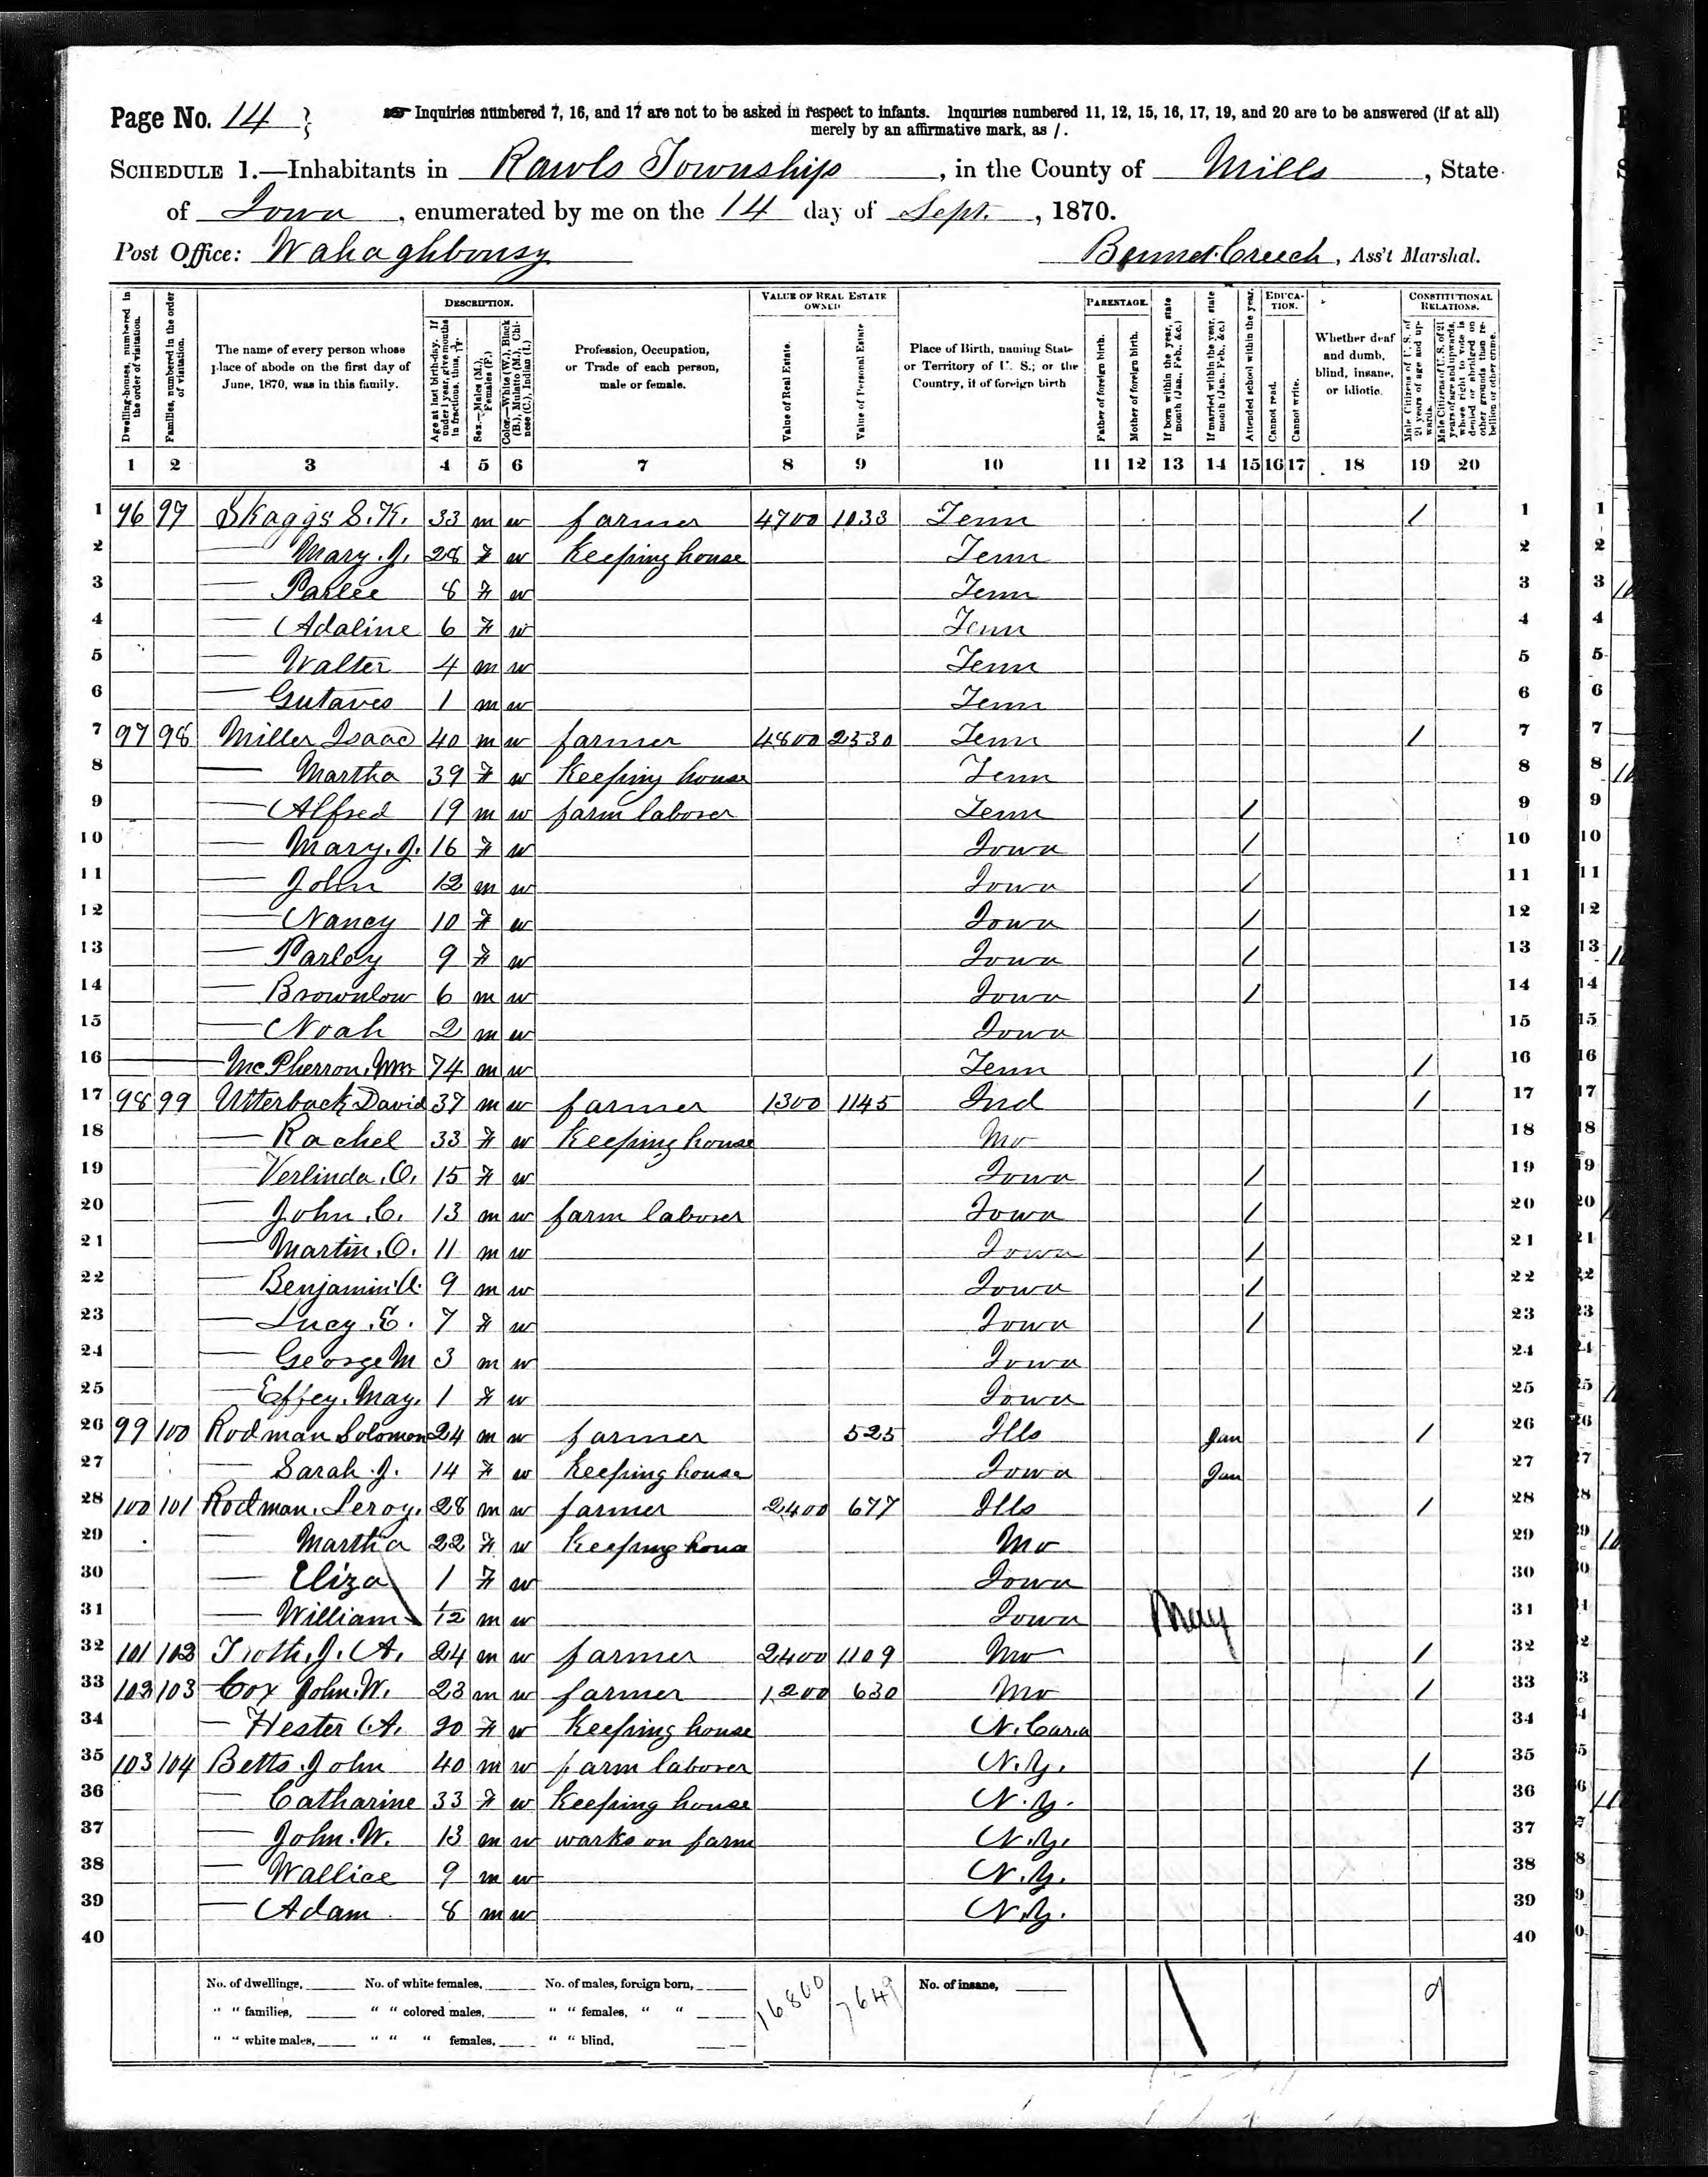 Page No. 14
Inquiries numbered 7, 16, and 17 are not to be asked in respect to infants. Inquiries numbered 11, 12, 15, 16, 17, 19, and 20 are to be answered (if at all)
merely by an affirmative mark, as /.
SCHEDULE 1.—Inhabitants in Rawls Township, in the County of Mills, State
of Iowa, enumerated by me on the 14 day of Sept., 1870.
Post Office: Wahaghbonsy Bennet Creech, Ass't Marshal.
DESCRIPTION. VALUE OF REAL ESTATE OWNED PARENTAGE. EDUCATION. CONSTITUTIONAL RELATIONS.
Dwelling-houses, numbered in the order of visitation.
Families, numbered in the order of visitation.
The name of every person whose place of abode on the first day of June, 1870, was in this family.
Age at last birth-day. If under 1 year, give months in fractions, thus,
Sex.—Males (M.), Females (F.)
Color.—White (W.), Black (B.), Mulatto (M.), Chinese (C.), Indian (I.)
Profession, Occupation, or Trade of each person, male or female.
Value of Real Estate.
Value of Personal Estate
Place of Birth, naming State or Territory of U. S.; or the Country, if of foreign birth
Father of foreign birth.
Mother of foreign birth.
If born within the year, state month (Jan., Feb., &c.)
If married within the year, state month (Jan., Feb., &c.)
Attended school within the year.
Cannot read.
Cannot write.
Whether deaf and dumb, blind, insane, or idiotic.
Male Citizens of U. S. of 21 years of age and upwards.
Male Citizens of U. S. of 21 years of age and upwards, whose right to vote is denied or abridged on other grounds than rebellion or other crime.
1 2 3 4 5 6 7 8 9 10 11 12 13 14 15 16 17 18 19 20
1 96 97 Skaggs S. K. 33 m w farmer 4700 1033 Tenn / 1
2 — Mary. J. 28 F w Keeping house Tenn 2
3 — Parlee 8 F w Tenn 3
4 — Adaline 6 F w Tenn 4
5 — Walter 4 m w Tenn 5
6 — Gutaves 1 m w Tenn 6
7 97 98 Miller Isaac 40 m w farmer 4800 2530 Tenn / 7
8 — Martha 39 F w Keeping house Tenn 8
9 — Alfred 19 m w farm laborer Tenn / 9
10 — Mary. J. 16 F w Iowa / 10
11 — John 12 m w Iowa / 11
12 — Nancy 10 F w Iowa / 12
13 — Parley 9 F w Iowa / 13
14 — Brownlow 6 m w Iowa / 14
15 — Noah 2 m w Iowa 15
16 — McPherron, Wm 74 m w Tenn / 16
17 98 99 Utterback David 37 m w farmer 1300 1145 Ind / 17
18 — Rachel 33 F w Keeping house Mo 18
19 — Verlinda. O. 15 F w Iowa / 19
20 — John. C. 13 m w farm laborer Iowa / 20
21 — Martin. O. 11 m w Iowa / 21
22 — Benjamin A. 9 m w Iowa / 22
23 — Lucy. E. 7 F w Iowa / 23
24 — George M 3 m w Iowa 24
25 — Effey. May. 1 F w Iowa 25
26 99 100 Rodman Solomon 24 m w farmer 525 Ills Jan / 26
27 — Sarah. J. 14 F w Keeping house Iowa Jan 27
28 100 101 Rodman. Leroy. 28 m w farmer 2400 677 Ills / 28
29 — Martha 22 F w Keeping hous Mo 29
30 — Eliza 1 F w Iowa 30
31 — William 1/12 m w Iowa May 31
32 101 102 Troth. J. A. 24 m w farmer 2400 1109 Mo / 32
33 102 103 Cox John. W. 23 m w farmer 1200 630 Mo / 33
34 — Hester A. 20 F w Keeping house N. Cara 34
35 103 104 Betts. John 40 m w farm laborer N. Y. / 35
36 — Catharine 33 F w Keeping house N. Y. 36
37 — John. W. 13 m w warks on farm N. Y. 37
38 — Wallice 9 m w N. Y. 38
39 — Adam 8 m w N. Y. 39
40 40
No. of dwellings, No. of white females, No. of males, foreign born, 16800 7649 No. of insane, 9
" " families, " " colored males, " " females, " "
" " white males, " " " females, " " blind,